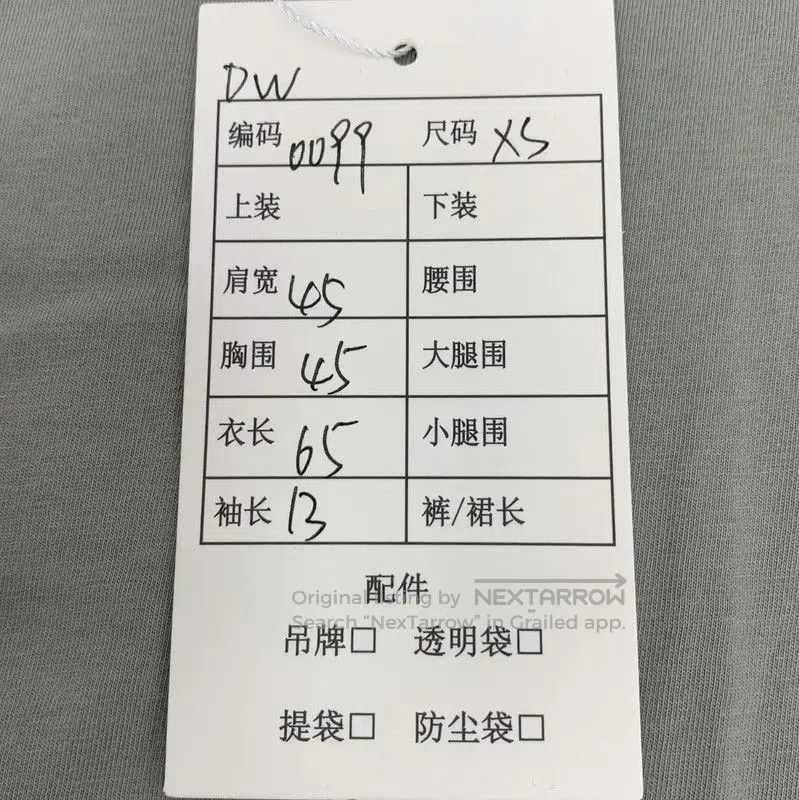 DW
编码 0099 尺码 XS
上装 下装
肩宽 45 腰围
胸围 45 大腿围
衣长 65 小腿围
袖长 13 裤/裙长
配件
Original listing by NEXTARROW
Search "NexTarrow" in Grailed app.
吊牌□ 透明袋□
提袋□ 防尘袋□